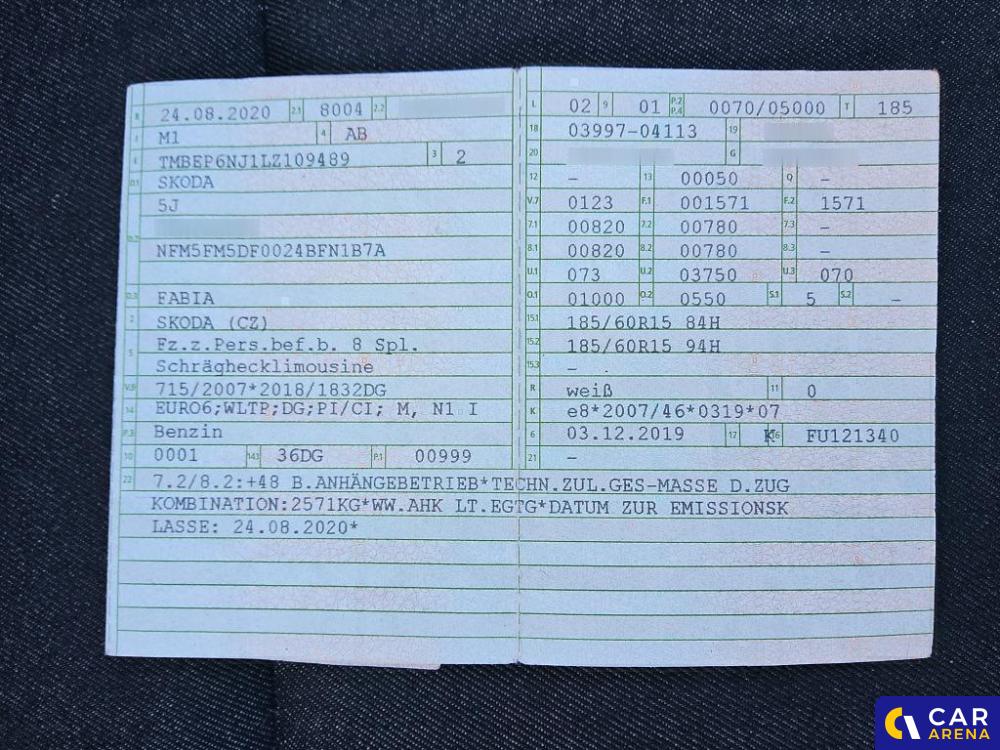 B 24.08.2020 2.1 8004 2.2
J M1 4 AB
E TMBEP6NJ1LZ109489 3 2
D.1 SKODA
5J
D.2
NFM5FM5DF0024BFN1B7A
D.3 FABIA
2 SKODA (CZ)
5 Fz.z.Pers.bef.b. 8 Spl.
Schräghecklimousine
V.9 715/2007*2018/1832DG
14 EURO6;WLTP;DG;PI/CI; M, N1 I
P.3 Benzin
10 0001 14.1 36DG P.1 00999
L 02 9 01 P.2 P.4 0070/05000 T 185
18 03997-04113 19
20 G
12 – 13 00050 Q –
V.7 0123 F.1 001571 F.2 1571
7.1 00820 7.2 00780 7.3 –
8.1 00820 8.2 00780 8.3 –
U.1 073 U.2 03750 U.3 070
O.1 01000 O.2 0550 S.1 5 S.2 –
15.1 185/60R15 84H
15.2 185/60R15 94H
15.3 –
R weiß 11 0
K e8*2007/46*0319*07
6 03.12.2019 17 K 16 FU121340
21 –
22 7.2/8.2:+48 B.ANHÄNGEBETRIEB*TECHN.ZUL.GES-MASSE D.ZUG
KOMBINATION:2571KG*WW.AHK LT.EGTG*DATUM ZUR EMISSIONSK
LASSE: 24.08.2020*
CAR
ARENA